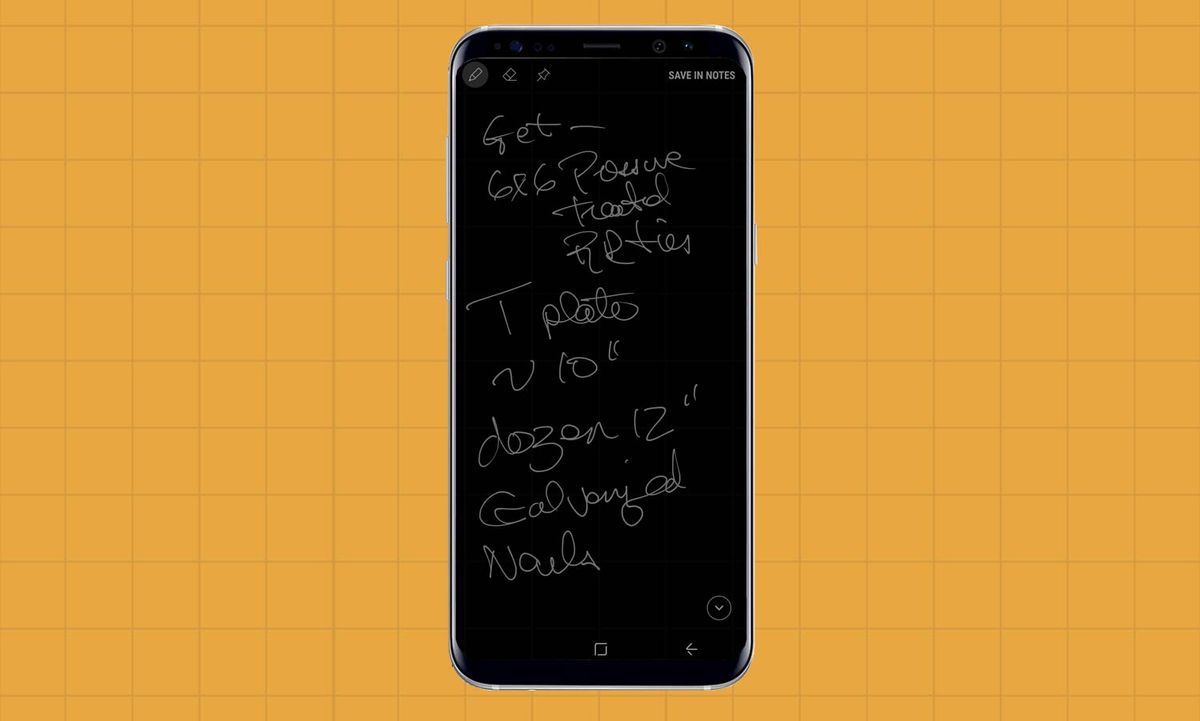 SAVE IN NOTES
Get –
6x6 Pressure
treated
RR ties
T plates
~ 10"
dozen 12"
Galvanized
Nails